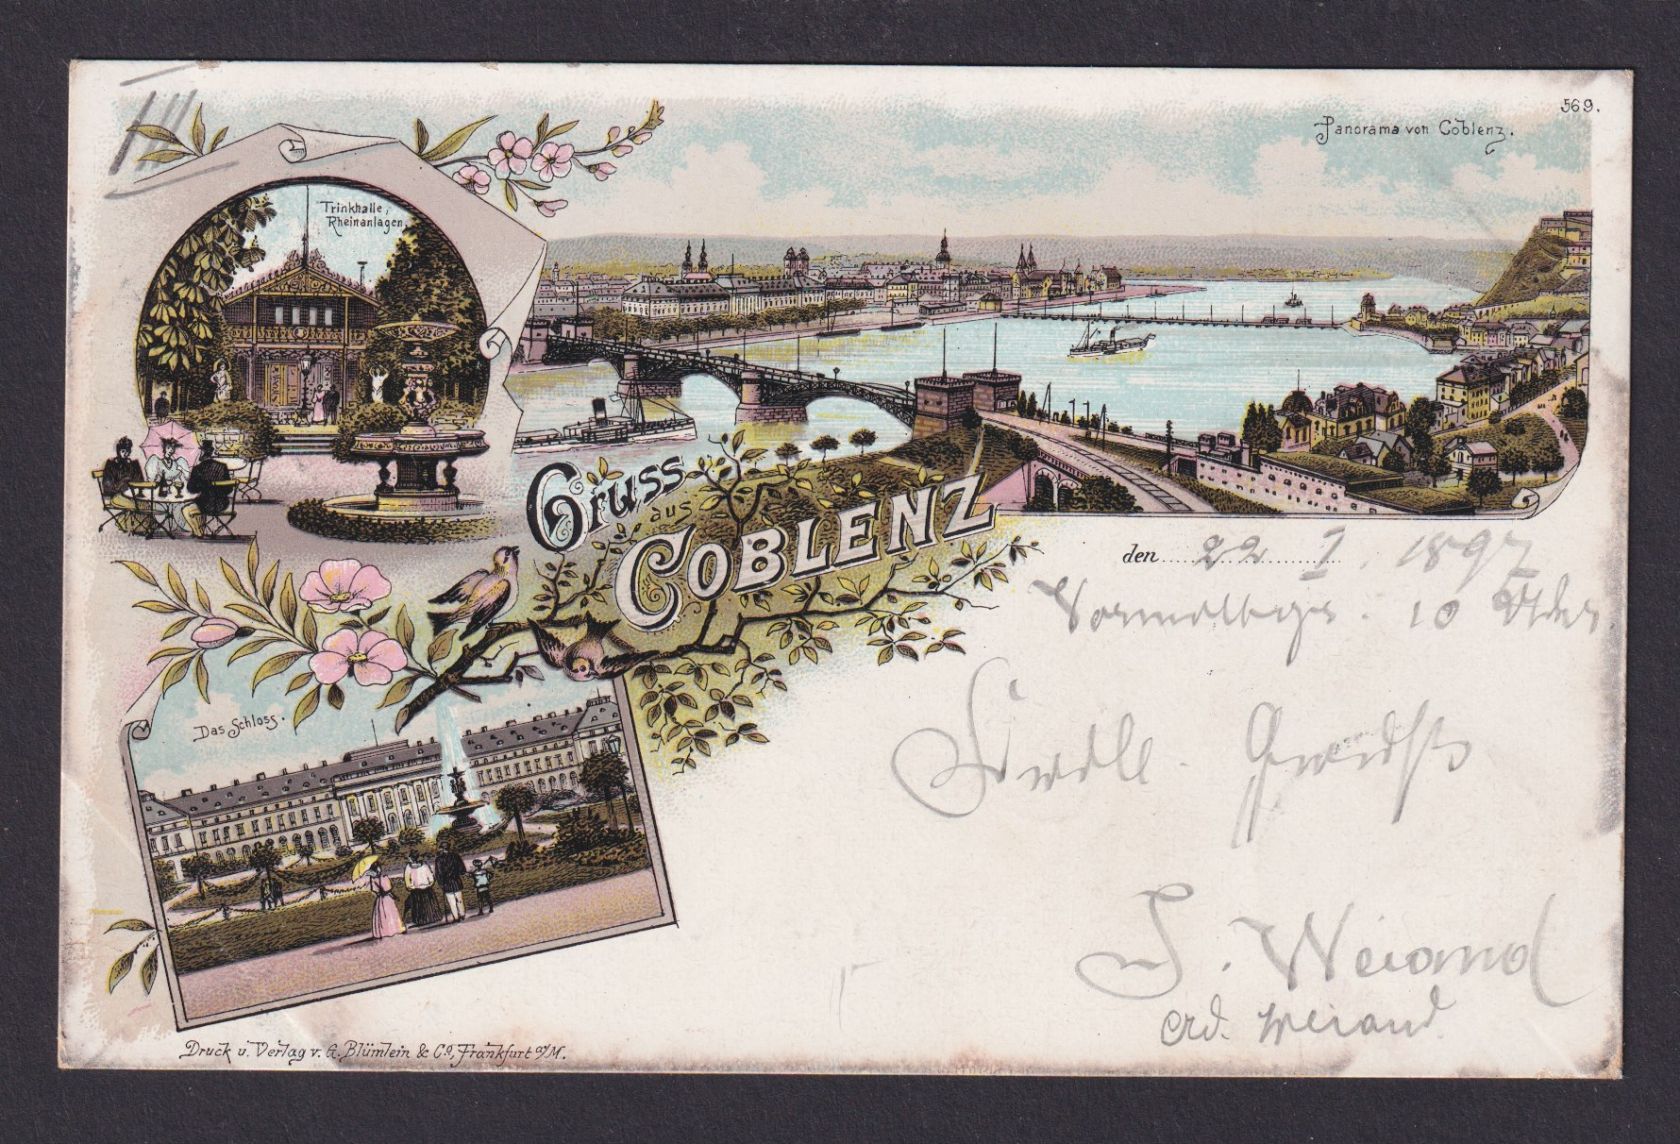 III
569.
Panorama von Coblenz.
Trinkhalle,
Rheinanlagen.
Gruss
aus
COBLENZ
den 22 I. 1897
10 Uhr
Das Schloss.
J. Weiand
Weiand
Druck u. Verlag v. A. Blümlein & Co, Frankfurt a/M.